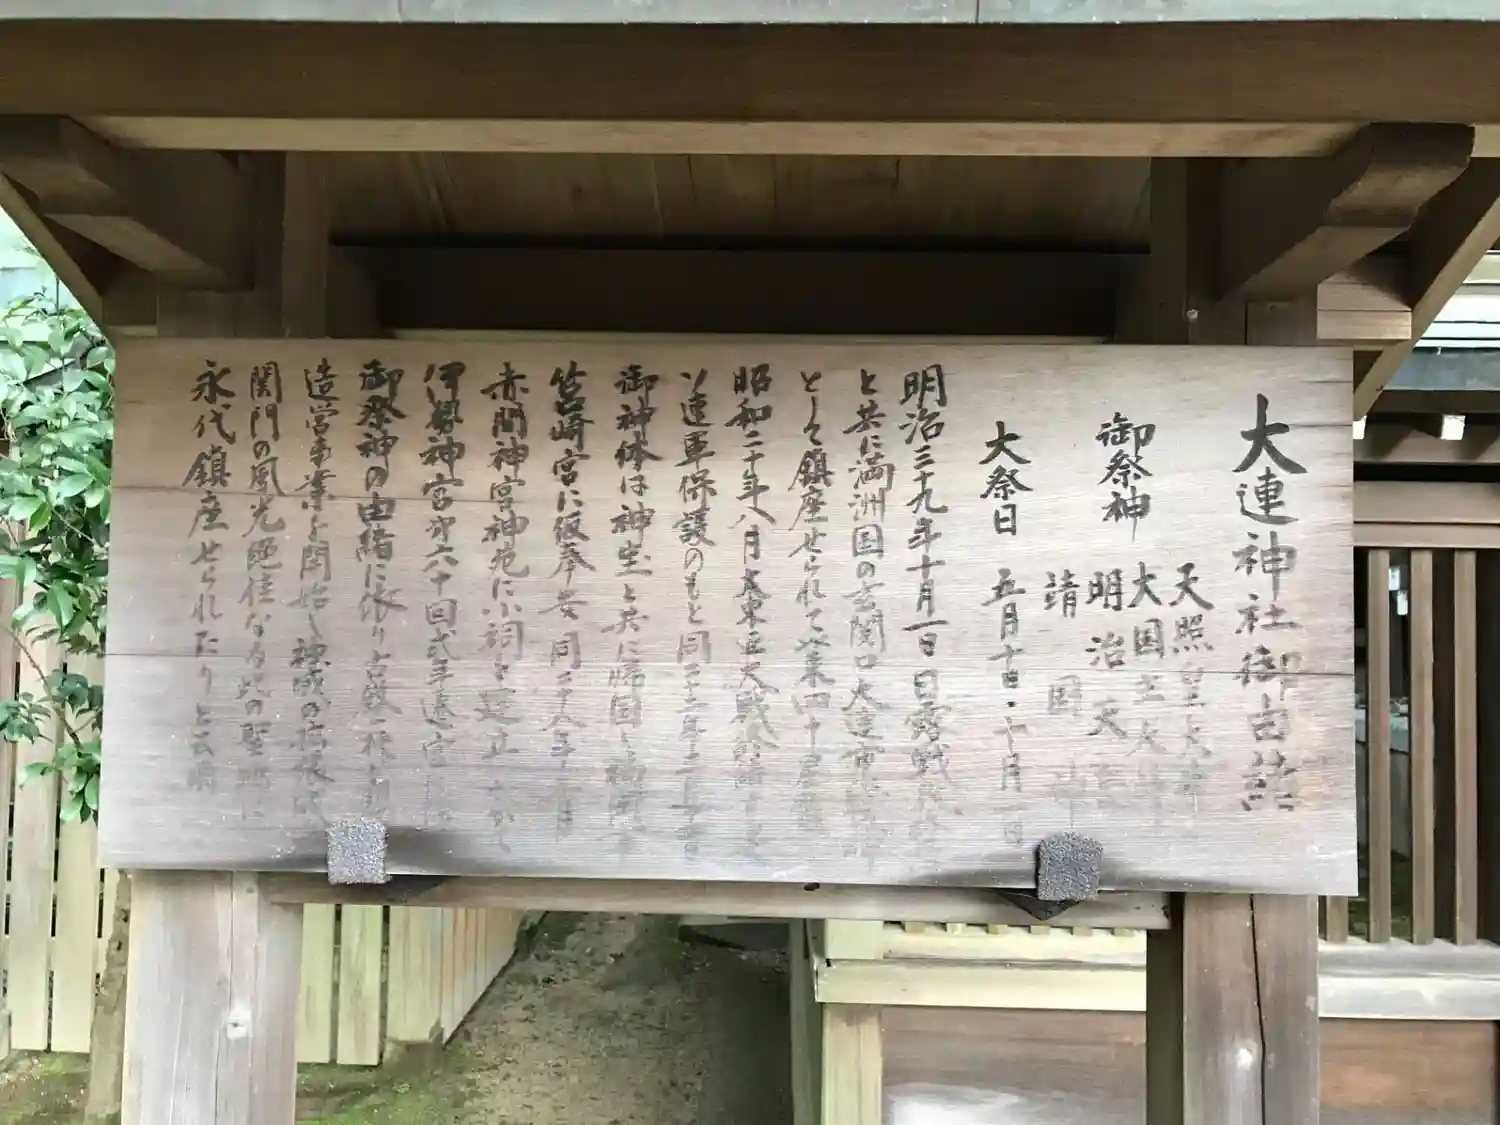 大連神社御由緒
御祭神
天照皇大神
大国主大神
明治天皇
靖国神
大祭日 五月十日・十月一日
明治三十九年十月一日日露戦
と共に満洲国の玄関口大連市
として鎮座せられて以来四十
昭和二十年八月大東亜大戦終
ソ連軍保護のもと同二十二年
御神体は神宝と共に帰国し福岡
筥崎宮に仮奉安同二十八年 月
赤間神宮神苑に小祠を建立
伊勢神宮第六十回式年遷宮
御祭神の由緒に依り古殿
造営事業を開始し神威の
関門の風光絶佳なる此の聖地に
永代鎮座せられたりと云爾